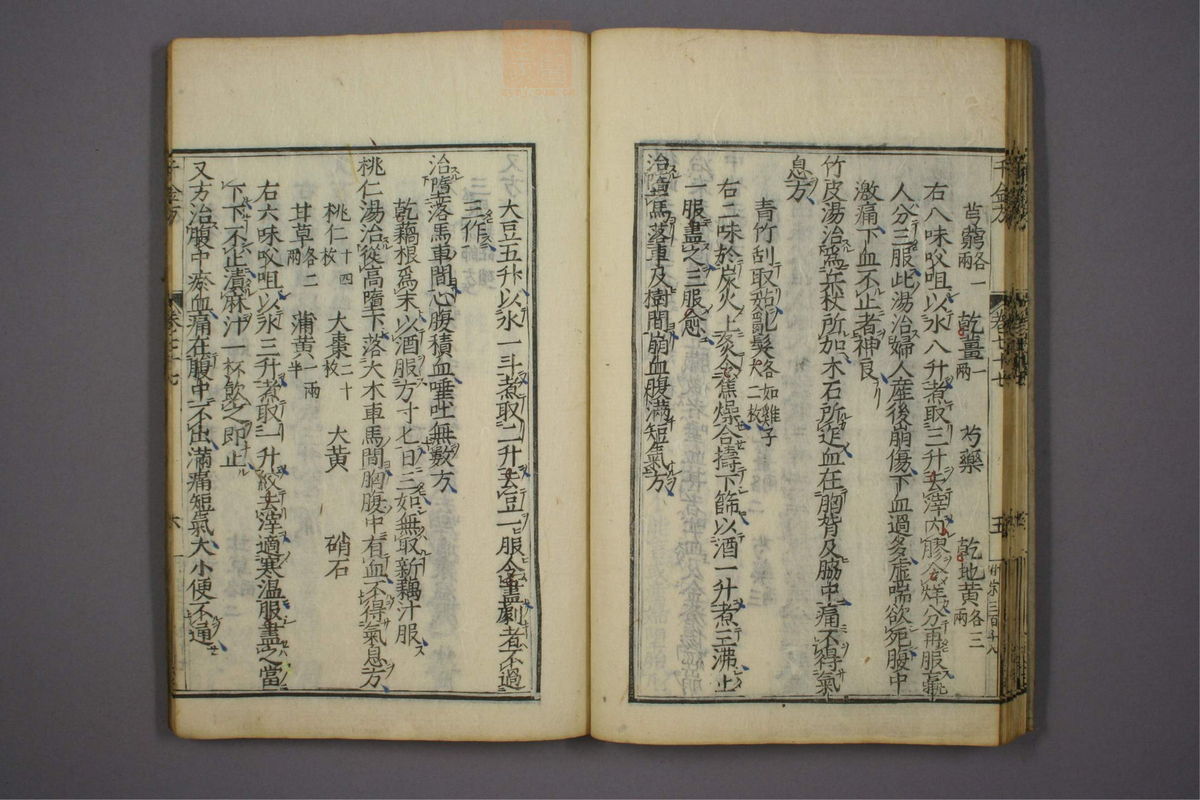 千金方 卷七十七 五
芎藭各一兩 乾薑一兩 芍藥 乾地黃各三兩
右八味㕮咀以水八升煮取三升去滓內膠令烊分再服羸
人分三服此湯治婦人産後崩傷下血過多虛喘欲死腹中
激痛下血不止者神良
竹皮湯治爲兵杖所加木石所迮血在胸背及脇中痛不得氣
息方
青竹刮取茹 亂髮各如雞子大二枚
右二味於炭火上炙令焦燥合擣下篩以酒一升煮三沸止
一服盡之三服愈
治墮馬落車及樹間崩血腹滿短氣方
大豆五升以水一斗煮取二升去豆一服令盡劇者不過
三作
治墮落馬車間心腹積血唾吐無數方
乾藕根爲末以酒服方寸匕日三如無取新藕汁服
桃仁湯治從高墮下落大木車馬間胸腹中有血不得氣息方
桃仁十四枚 大棗二十枚 大黃 硝石
甘草各二兩 蒲黃一兩半
右六味㕮咀以水三升煮取一升絞去滓適寒溫服盡之當
下下不止漬麻汁一杯飲之即止
又方治腹中瘀血痛在腹中不出滿痛短氣大小便不通
千金方 卷七十七 六